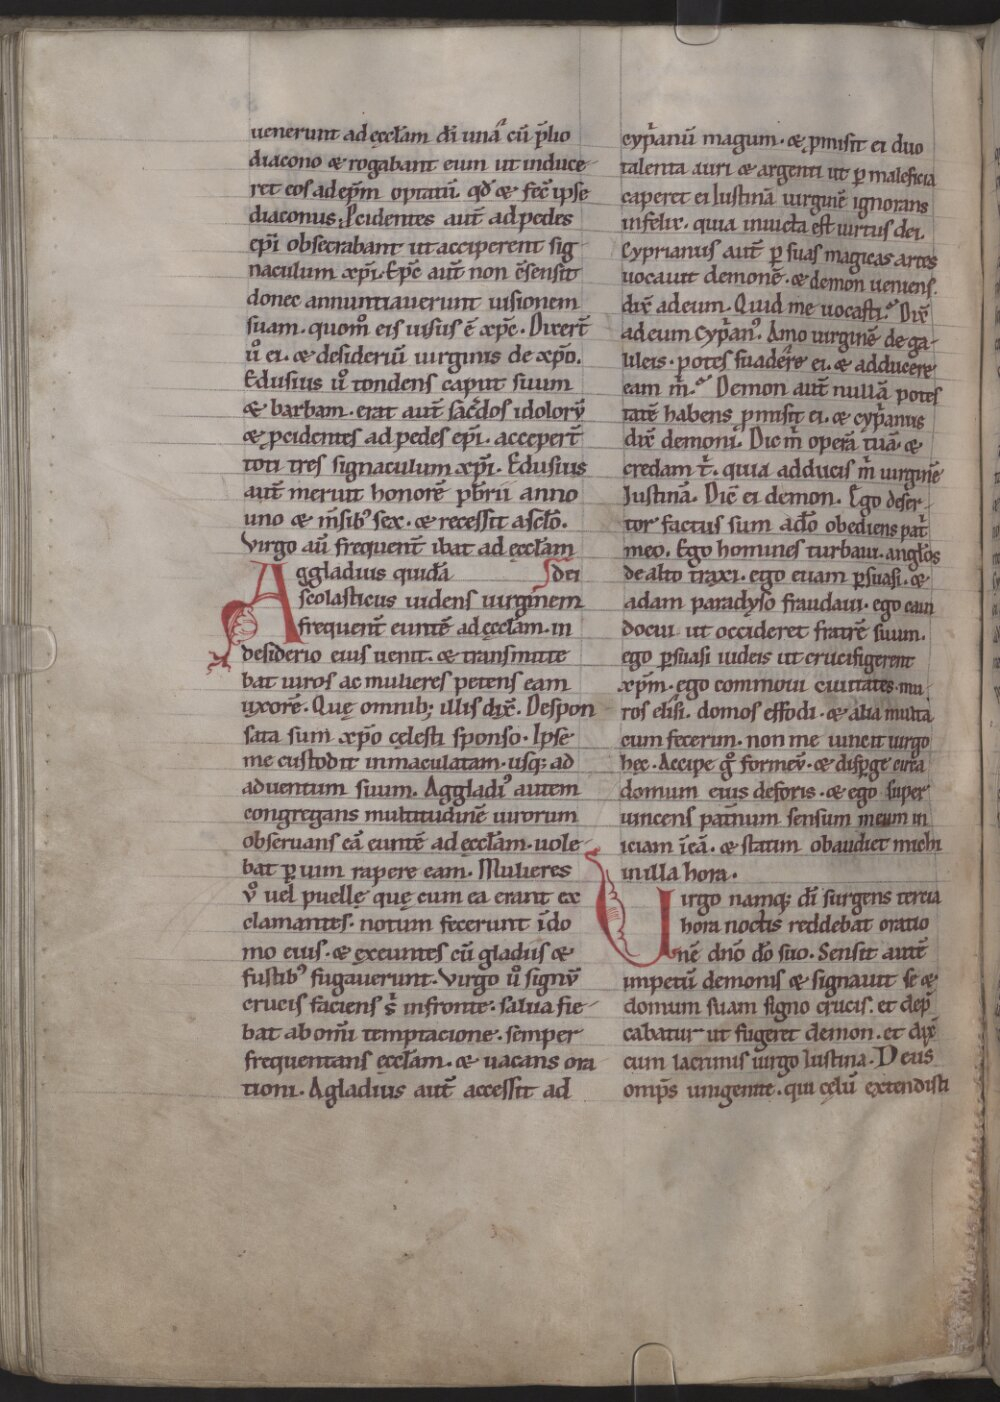 uenerunt ad ęccl̄am dī una᷑ cū p̄lio
diacono & rogabant eum ut induce
ret eos ad ep̄m optatū. qd̄ & fec̄ ipse
diaconus. Pcidentes aut̄ ad pedes
ep̄i obsecrabant ut acciperent sig
naculum xp̄i. Ep̄c aut̄ non c̄sensit
donec annuntiauerunt uisionem
suam. quom̊ eis uisus ē xp̄c. Dixer̄t
ů ei. & desideriū uirginis de xp̄o.
Edusius ů tondens caput suum
& barbam. erat aut̄ sac̄dos idolorū
& pcidentes ad pedes ep̄i. acceper̄t
toti tres signaculum xp̄i. Edusius
aut̄ meruit honorē pb̄rii anno
uno & m̄sib' sex. & recessit a sc̄lo.
Virgo aū frequent̄ ibat ad ęccl̄am
Aggladius quidā dei
scolasticus uidens uirginem
frequent̄ euntē ad ęccl̄am. in
desiderio eius uenit. & transmitte
bat uiros ac mulieres petens eam
uxorē. Quę omnib; illis dix̄. Despon
sata sum xp̄o cęlesti sponso. Ipse
me custodit inmaculatam. usq; ad
aduentum suum. Aggladi' autem
congregans multitudinē uirorum
obseruans eā euntē ad ęccl̄am. uole
bat p uim rapere eam. Mulieres
ů uel puellę quę cum ea erant ex
clamantes. notum fecerunt ī do
mo eius. & exeuntes cū gladiis &
fustib' fugauerunt. Virgo ů signū
crucis faciens s̄ in fronte. salua fie
bat ab om̄i temptacione. semper
frequentans ęccl̄am. & uacans ora
tioni. Agladius aut̄ accessit ad
cyp̄anū magum. & pmisit ei duo
talenta auri & argenti ut p maleficia
caperet ei Iustinā uirginē ignorans
infelix. quia inuicta est uirtus dei.
Cyprianus aut̄ p suas magicas artes
uocauit demonē. & demon ueniens.
dix̄ ad eum. Quid me uocasti? Dix̄
ad eum cyp̄an'. Amo uirginē de ga
lileis. potes suadere ei. & adducere
eam m̄? Demon aut̄ nullā potes
tatē habens pmisit ei. & cyp̄anus
dix̄ demoni. Dic m̄ operā tuā. &
credam t̄. quia adducis m̄ uirginē
Iustinā. Dic̄ ei demon. Ego deser
tor factus sum a dō obediens pat̄
meo. Ego homines turbaui. angl̄os
de alto traxi. ego euam psuasi. &
adam paradyso fraudaui. ego cain
docui ut occideret fratrē suum.
ego psuasi iudeis ut crucifigerent
xp̄m. ego commoui ciuitates. mu
ros elisi. domos effodi. & alia multa
cum fecerim. non me uincit uirgo
hęc. Accipe g̊ formeū. & dispge circa
domum eius deforis. & ego super
uincens pat̄num sensum meum in
iciam ī eā. & statim obaudiet michi
in illa hora.
Uirgo namq; dī surgens tercia
hora noctis reddebat oratio
nē dn̄o dō suo. Sensit aut̄
impetū demonis & signauit se &
domum suam signo crucis. et dep̄
cabatur ut fugeret demon. et dix̄
cum lacrimis uirgo Iustina. Deus
omp̄s unigenite. qui cęlū extendisti